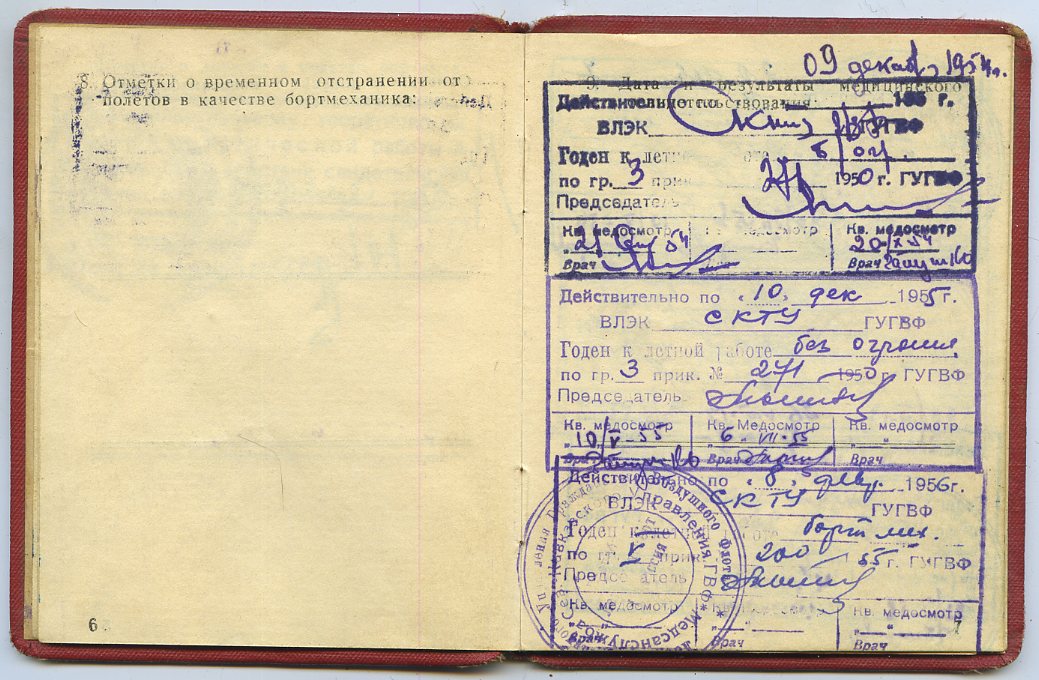 8. Отметки о временном отстранении от
полетов в качестве бортмеханика:
6
09 декаб, 1954 г.
9. Дата и результаты медицинского
освидетельствования:
Действительно по 195 г.
ВЛЭК ГУГВФ
Годен к летной работе б/огр.
по гр. 3 прик. 271 1950 г. ГУГВФ
Председатель
Кв. медосмотр Кв. медосмотр Кв. медосмотр
21 54 20/X 54
Врач Врач
Действительно по "10" дек 1955 г.
ВЛЭК СКТУ ГУГВФ
Годен к летной работе без огранич
по гр. 3 прик. № 271 1950 г. ГУГВФ
Председатель
Кв. медосмотр Кв. медосмотр Кв. медосмотр
"10/V-55 6-VII-55 " "
Врач Врач Врач
Действительно по "8" февр. 1956 г.
ВЛЭК СКТУ ГУГВФ
Годен к летной работе борт мех.
по гр. V прик. 200 55 г. ГУГВФ
Председатель
Кв. медосмотр Кв. медосмотр Кв. медосмотр
Врач Врач Врач
7